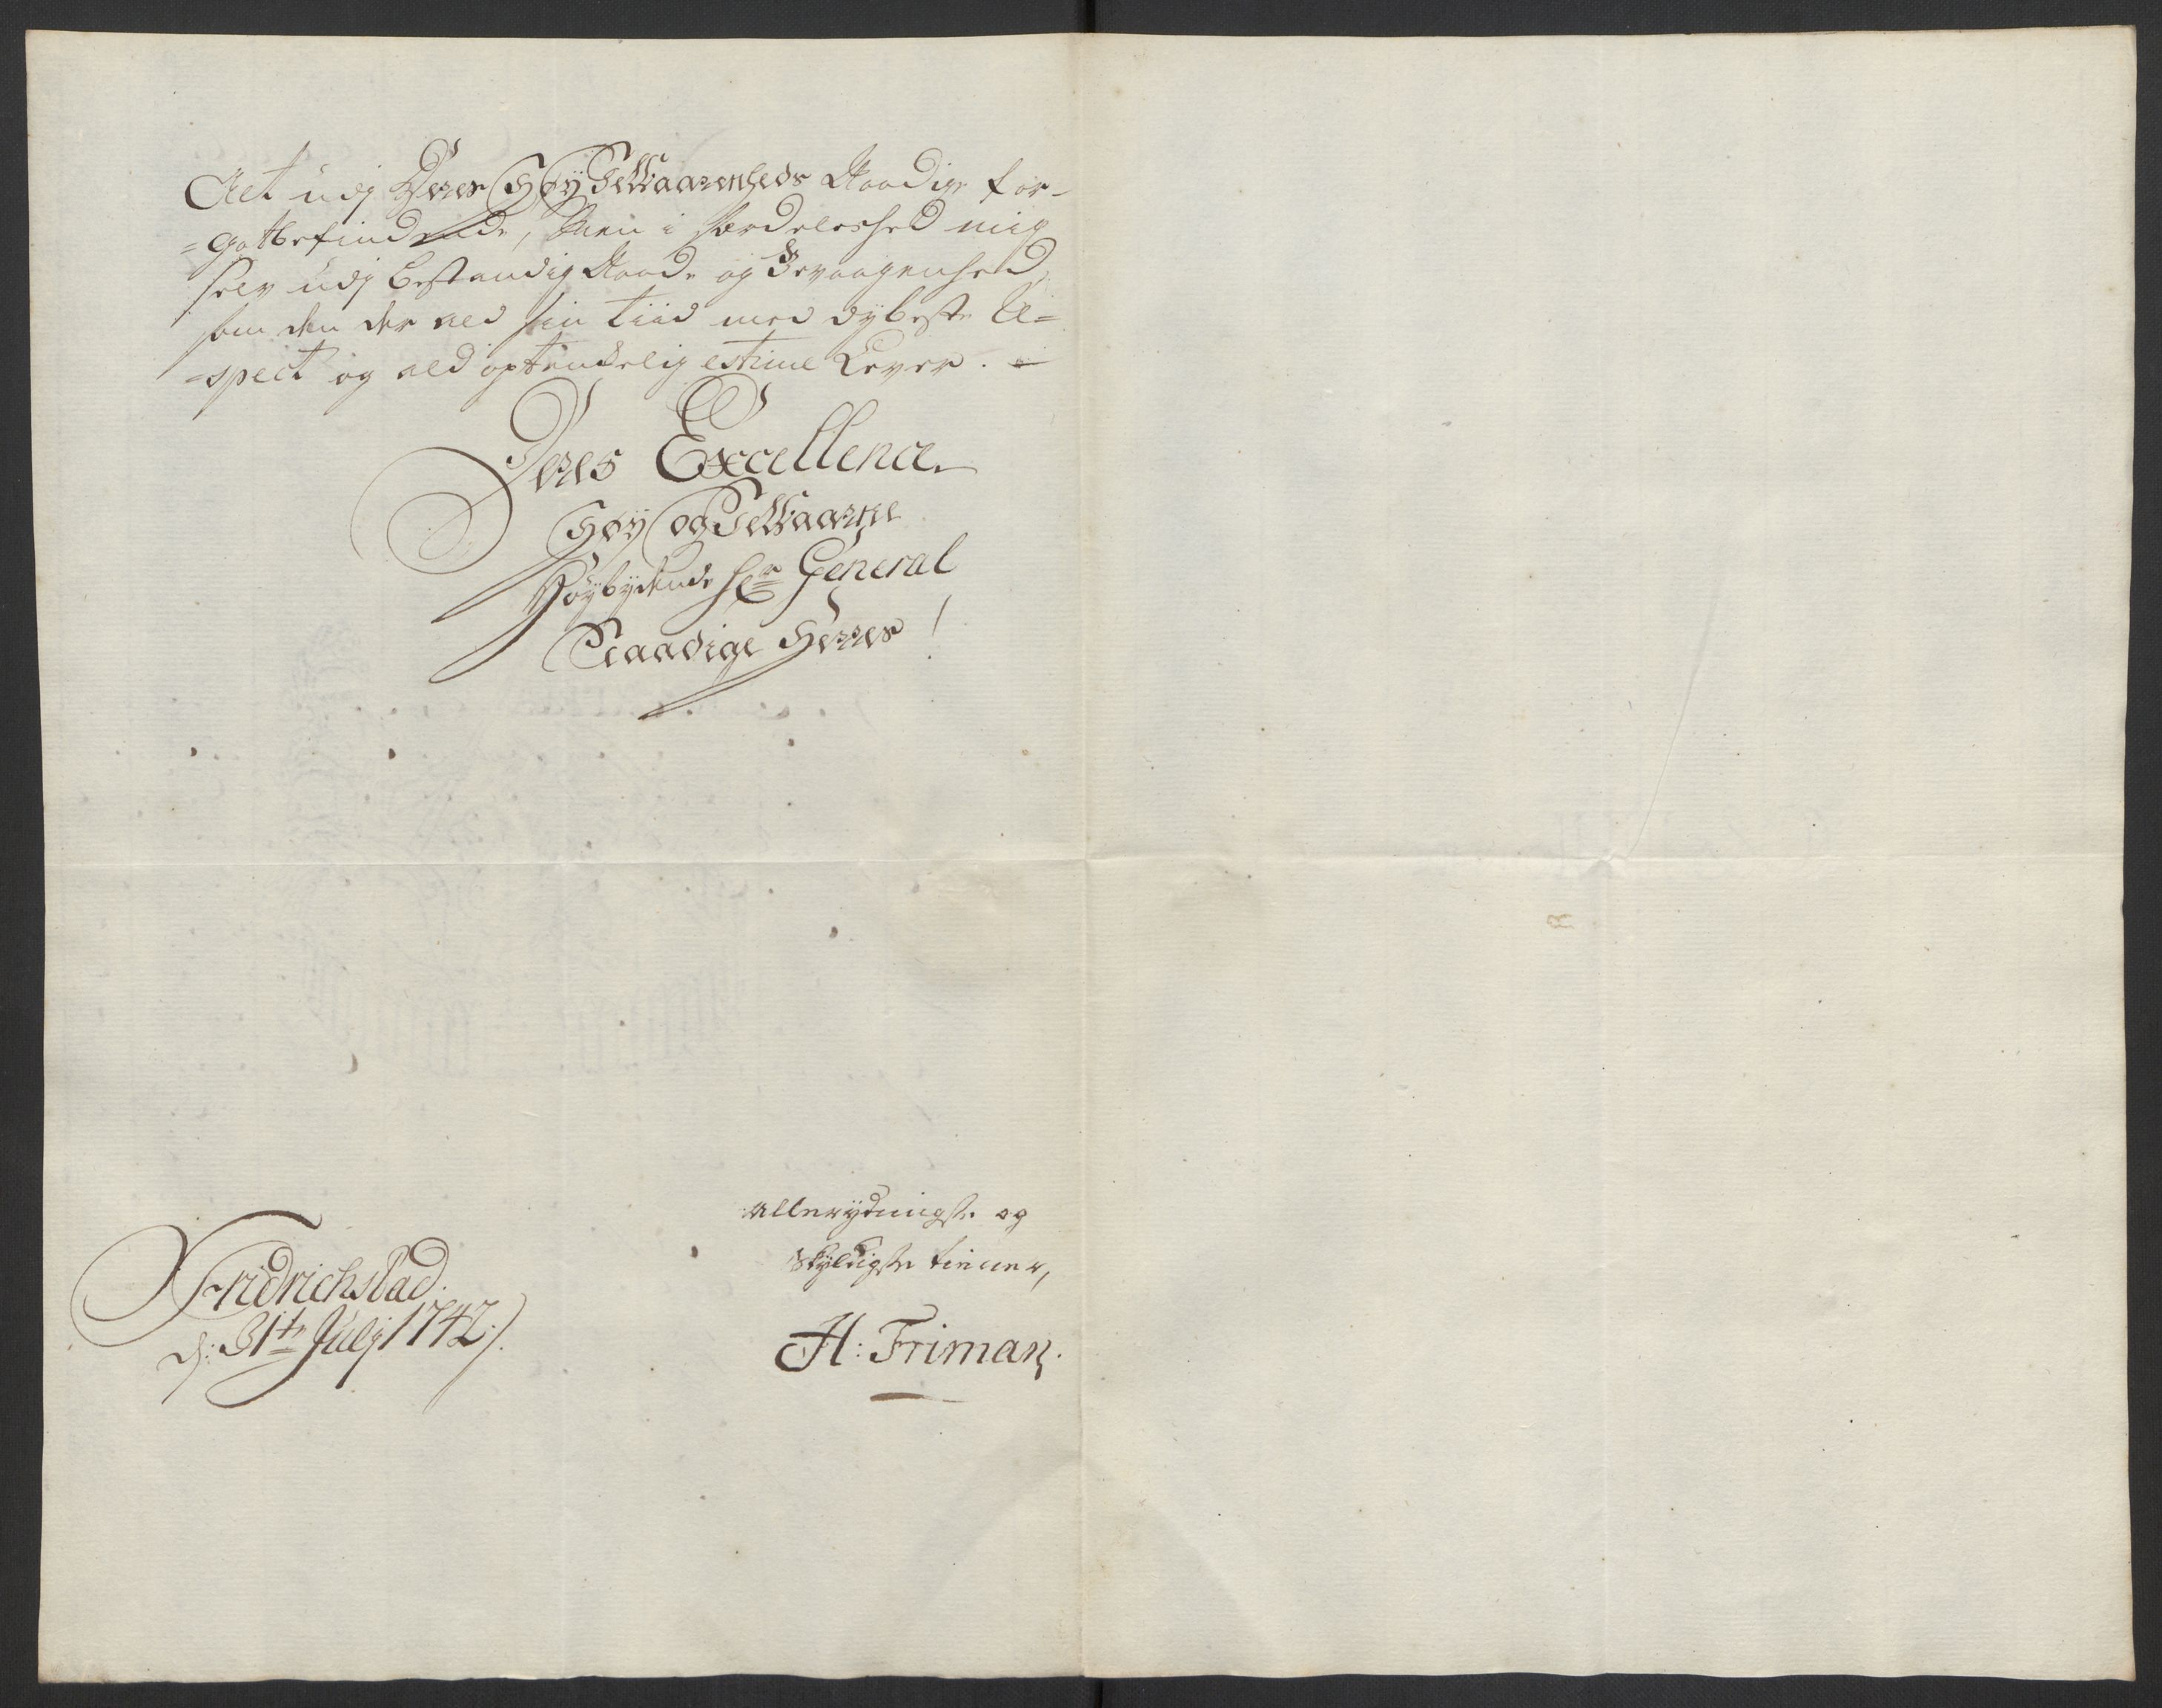 Alt udj Deres Høy Velbaarenheds Naadige for-
=gotbefindende, Men i særdeleshed mig
selv udj bestandig Naade og Bevaagenhed,
som den der ald sin tiid med dybeste Re=
=spect og ald optænkelig estime Lever.
Deres Excellence
Høy og Velbaarne
Høybydende Hr General
Naadige Herre!
Allerydmigste og
skyldigste tienner,
H: Friman.
Fridrichstad
d: 31te Julij 1742.